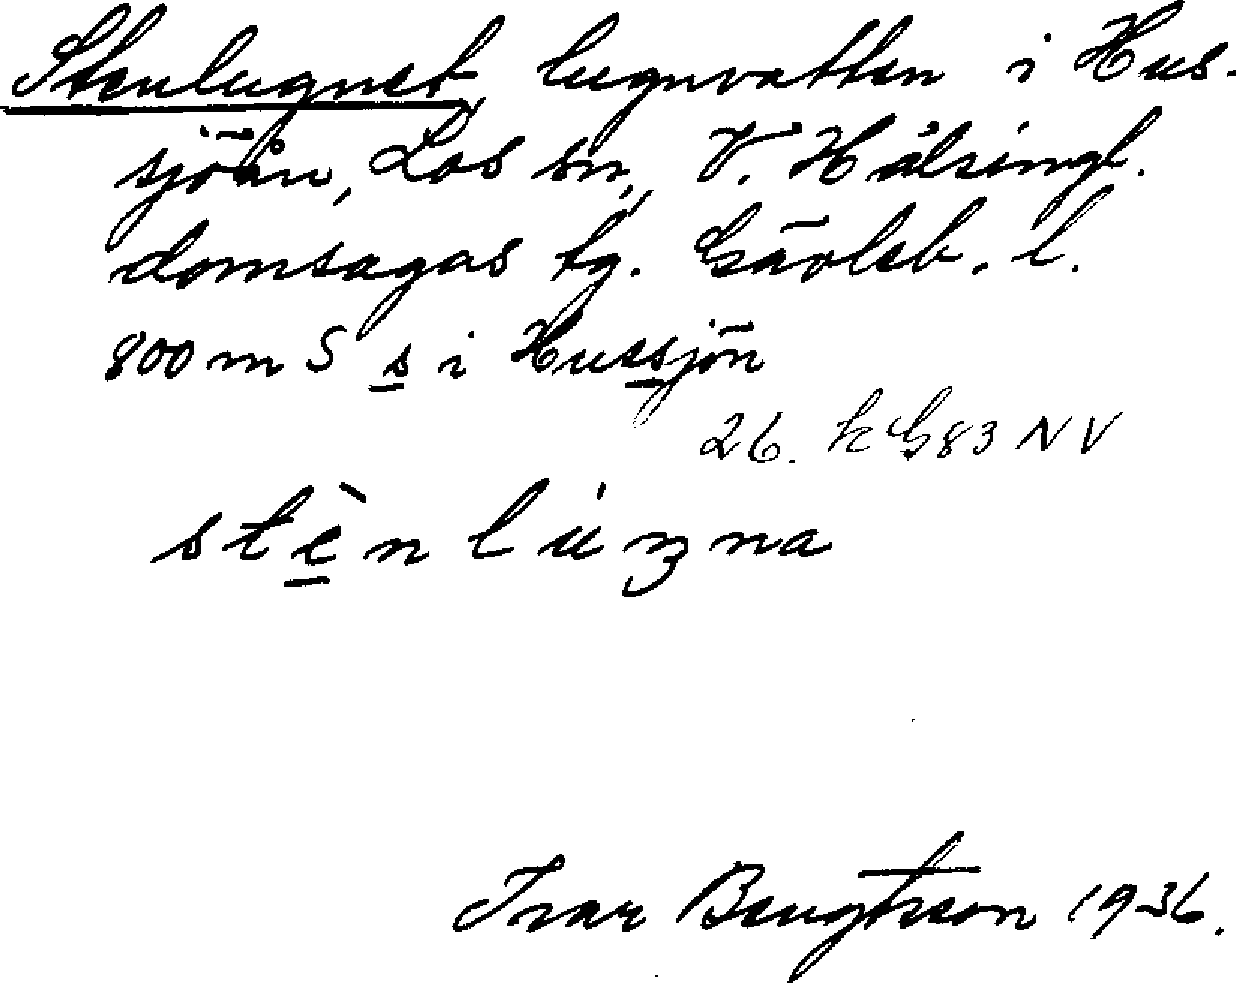 Stenlugnet, lugnvatten i Hus-
sjöån, Los sn, V. Hälsingl.
domsagas tg. Gävleb. l.
800 m S s i Hussjön
26. k G83 NV
stènlúʒna
Ivar Bengtsson 1936.